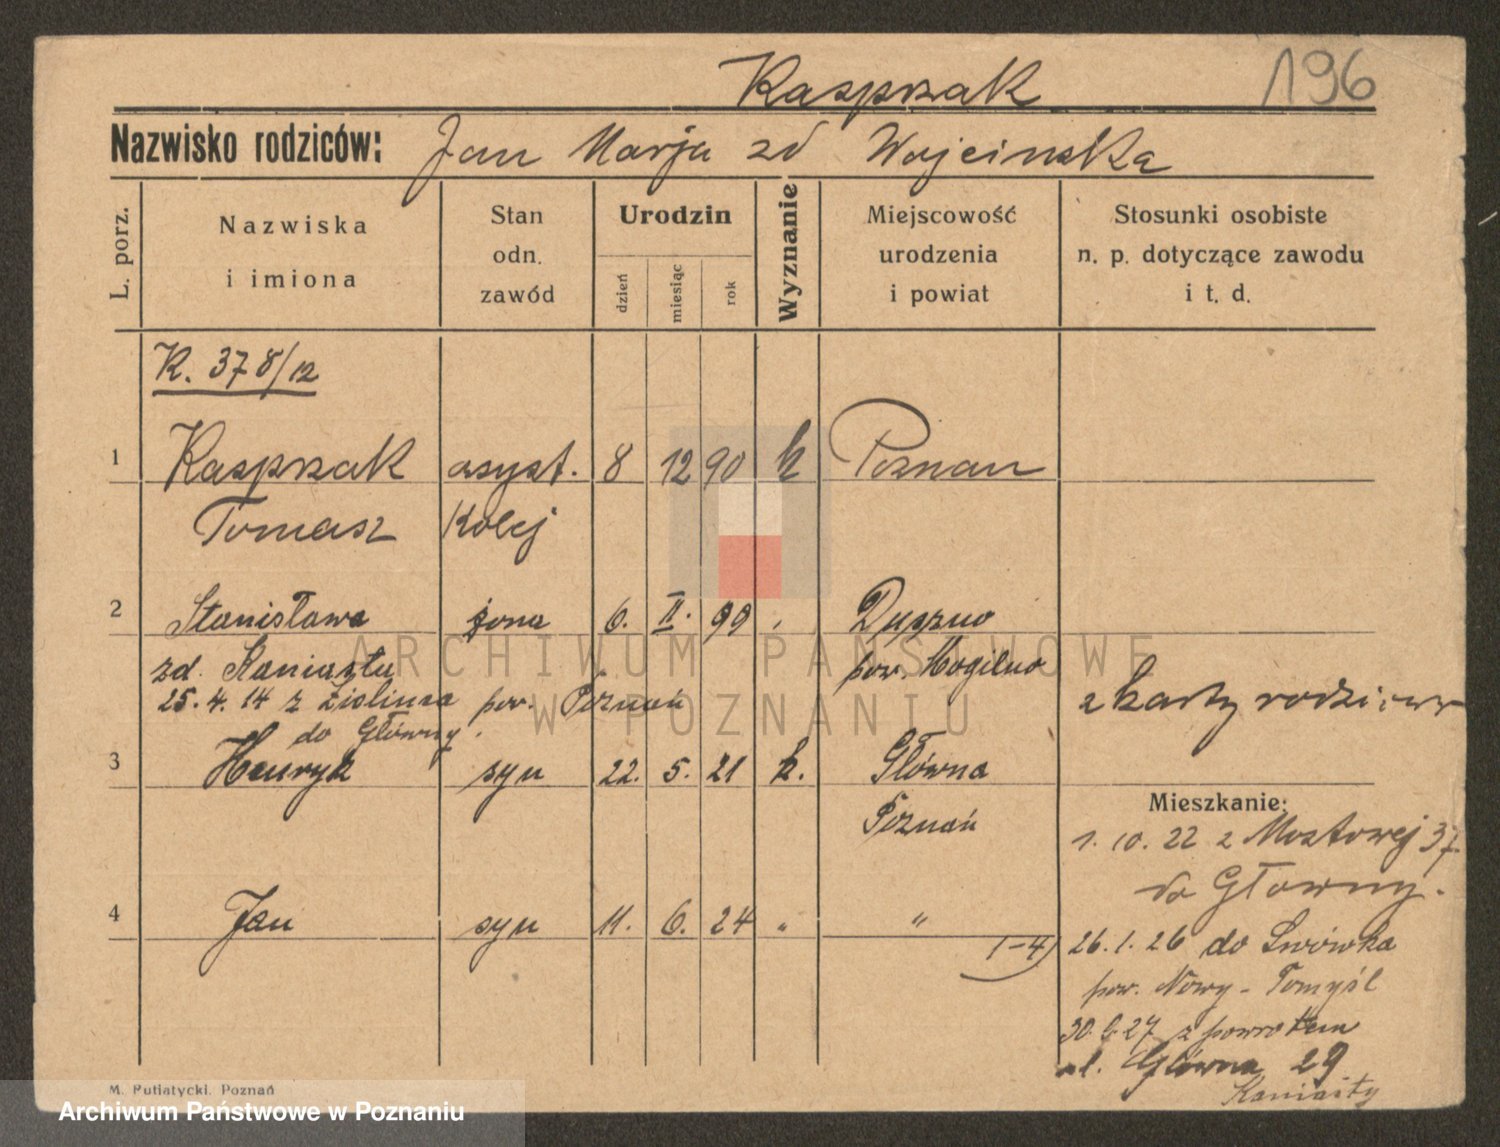 Kasprzak 196
Nazwisko rodziców: Jan Marja zd Wojcinska
L. porz.
Nazwiska
i imiona
Stan
odn.
zawód
Urodzin
dzień
miesiąc
rok
Wyznanie
Miejscowość
urodzenia
i powiat
Stosunki osobiste
n. p. dotyczące zawodu
i t. d.
K. 378/12
1 Kasprzak asyst. 8 12 90 k Poznan
Tomasz Kolej
2 Stanisława żona 6. II. 99 Duszno
zd. Kaniasty pow. Mogilno
25.4.14 z pow. Poznań z karty rodziców
do Główny.
3 Henryk syn 22. 5. 21 k. Główna
Mieszkanie:
Poznań 1. 10. 22 z Mostowej 37
do Głowny.
4 Jan syn 11. 6. 24 " "
1-4) 26.1.26 do Lwówka
pow. Nowy-Tomyśl
27 z powrotem
ul. Główna 29
Kaniasty
M. Putiatycki, Poznań
ARCHIWUM PAŃSTWOWE
W POZNANIU
Archiwum Państwowe w Poznaniu